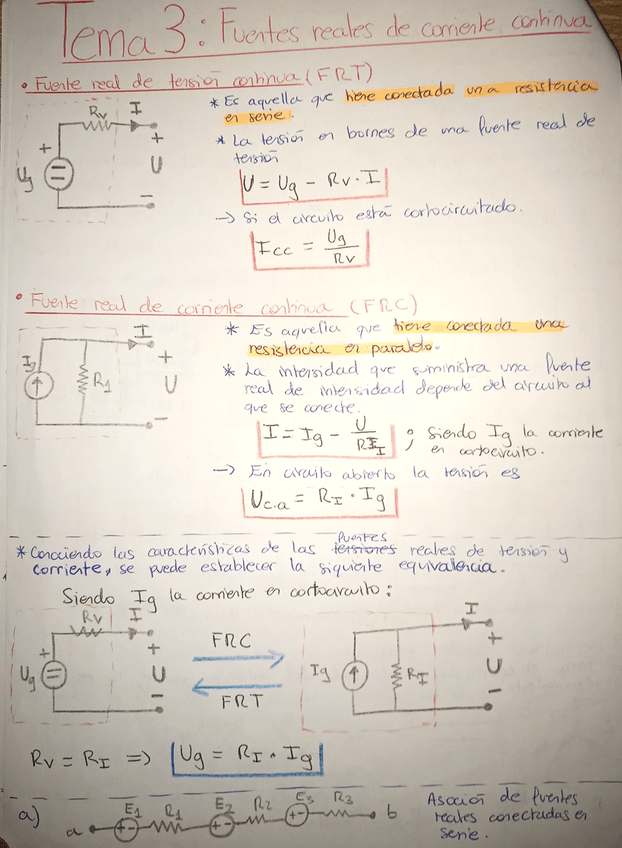 Tema 3: Fuentes reales de corriente continua
• Fuente real de tensión continua (FRT)
Rv I
+ + Ug U - 
* Es aquella que tiene conectada una resistencia
en serie.
* La tensión en bornes de una fuente real de
tensión
U = Ug - Rv · I
→ Si el circuito está cortocircuitado.
Icc = Ug / Rv
• Fuente real de corriente continua (FRC)
I
Ig R1 + U -
* Es aquella que tiene conectada una
resistencia en paralelo.
* La intensidad que suministra una fuente
real de intensidad depende del circuito al
que se conecte.
I = Ig - U / RI ; Siendo Ig la corriente
en cortocircuito.
→ En circuito abierto la tensión es
Uc.a = RI · Ig
fuentes
* Conociendo las características de las tensiones reales de tensión y
corriente, se puede establecer la siguiente equivalencia.
Siendo Ig la corriente en cortocircuito:
Rv I
+ + Ug U -
FRC
FRT
I
Ig RI + U -
Rv = RI => Ug = RI · Ig
a) a E1 R1 E2 R2 E3 R3 b
+ - + - + -
Asocion de fuentes
reales conectadas en
serie.